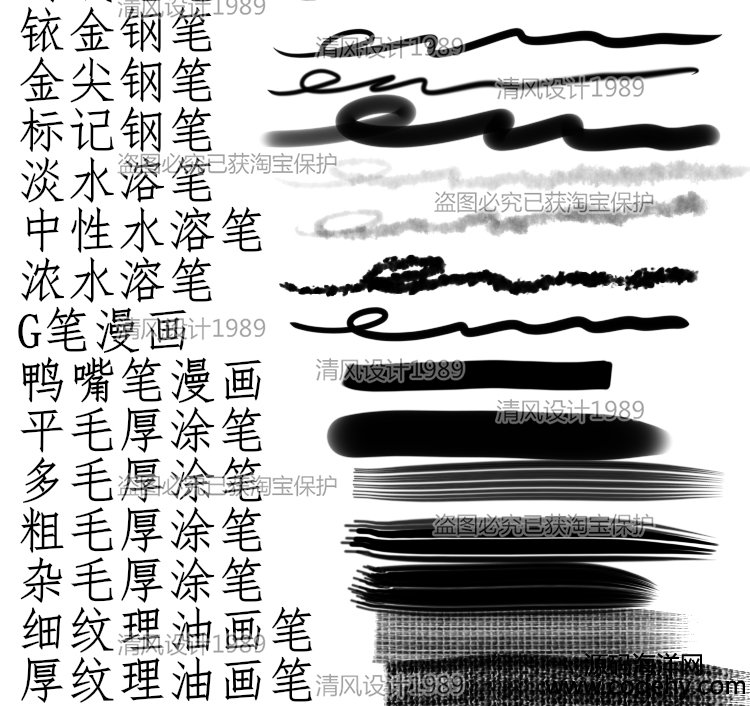 清风设计1989
铱金钢笔
清风设计1989
金尖钢笔
清风设计1989
标记钢笔
盗图必究已获淘宝保护
淡水溶笔
盗图必究已获淘宝保护
中性水溶笔
浓水溶笔
G笔漫画
清风设计1989
鸭嘴笔漫画
清风设计1989
清风设计1989
平毛厚涂笔
多毛厚涂笔
盗图必究已获淘宝保护
粗毛厚涂笔
盗图必究已获淘宝保护
杂毛厚涂笔
细纹理油画笔
清风设计1989
源码海洋网
厚纹理油画笔
清风设计1989